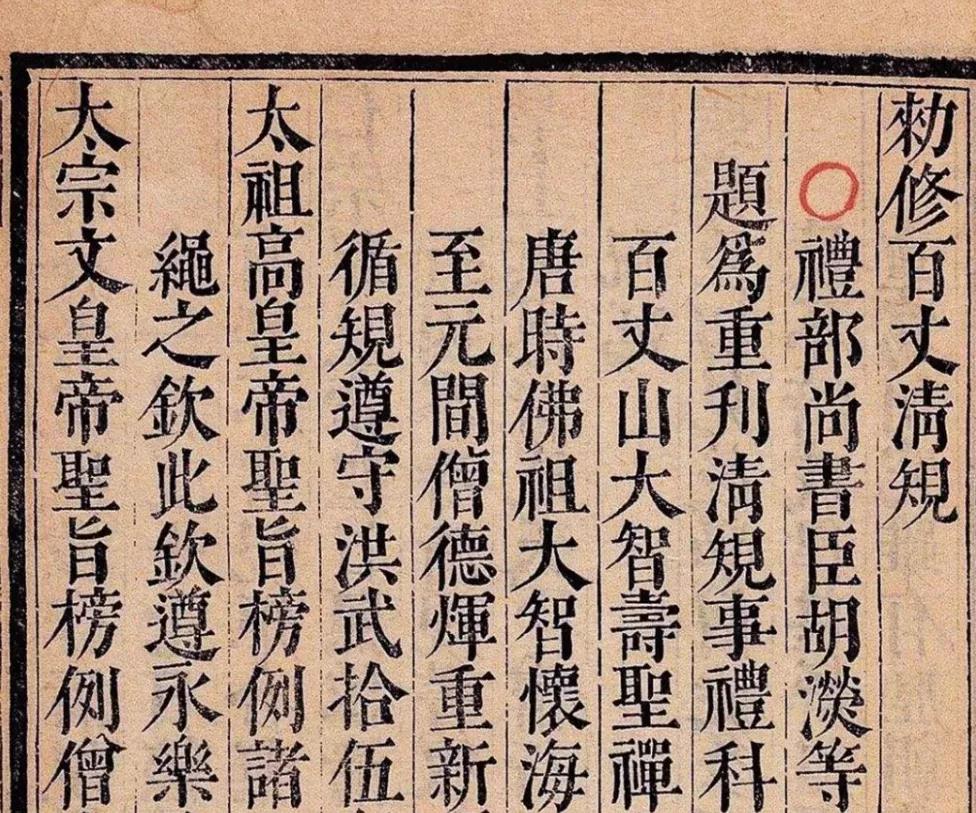 勑修百丈清規
禮部尚書臣胡濙等
題爲重刊清規事禮科
百丈山大智壽聖禪
唐時佛祖大智懷海
至元間僧德煇重新
循規遵守洪武拾伍
太祖高皇帝聖旨榜例諸
繩之欽此欽遵永樂
太宗文皇帝聖旨榜例僧